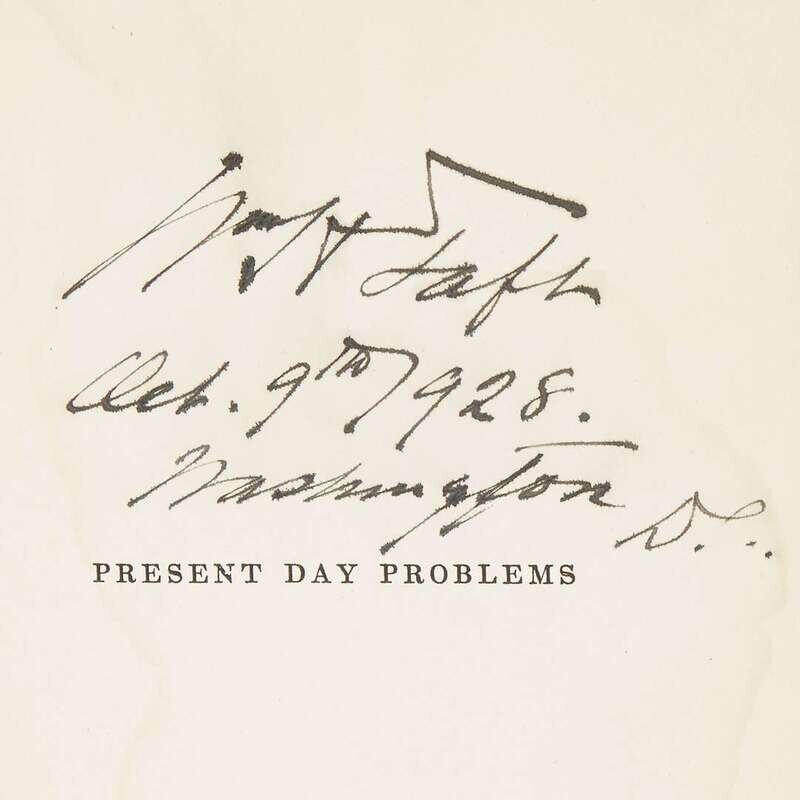 Wm H Taft
Oct. 9th 1928.
Washington D.C.
PRESENT DAY PROBLEMS